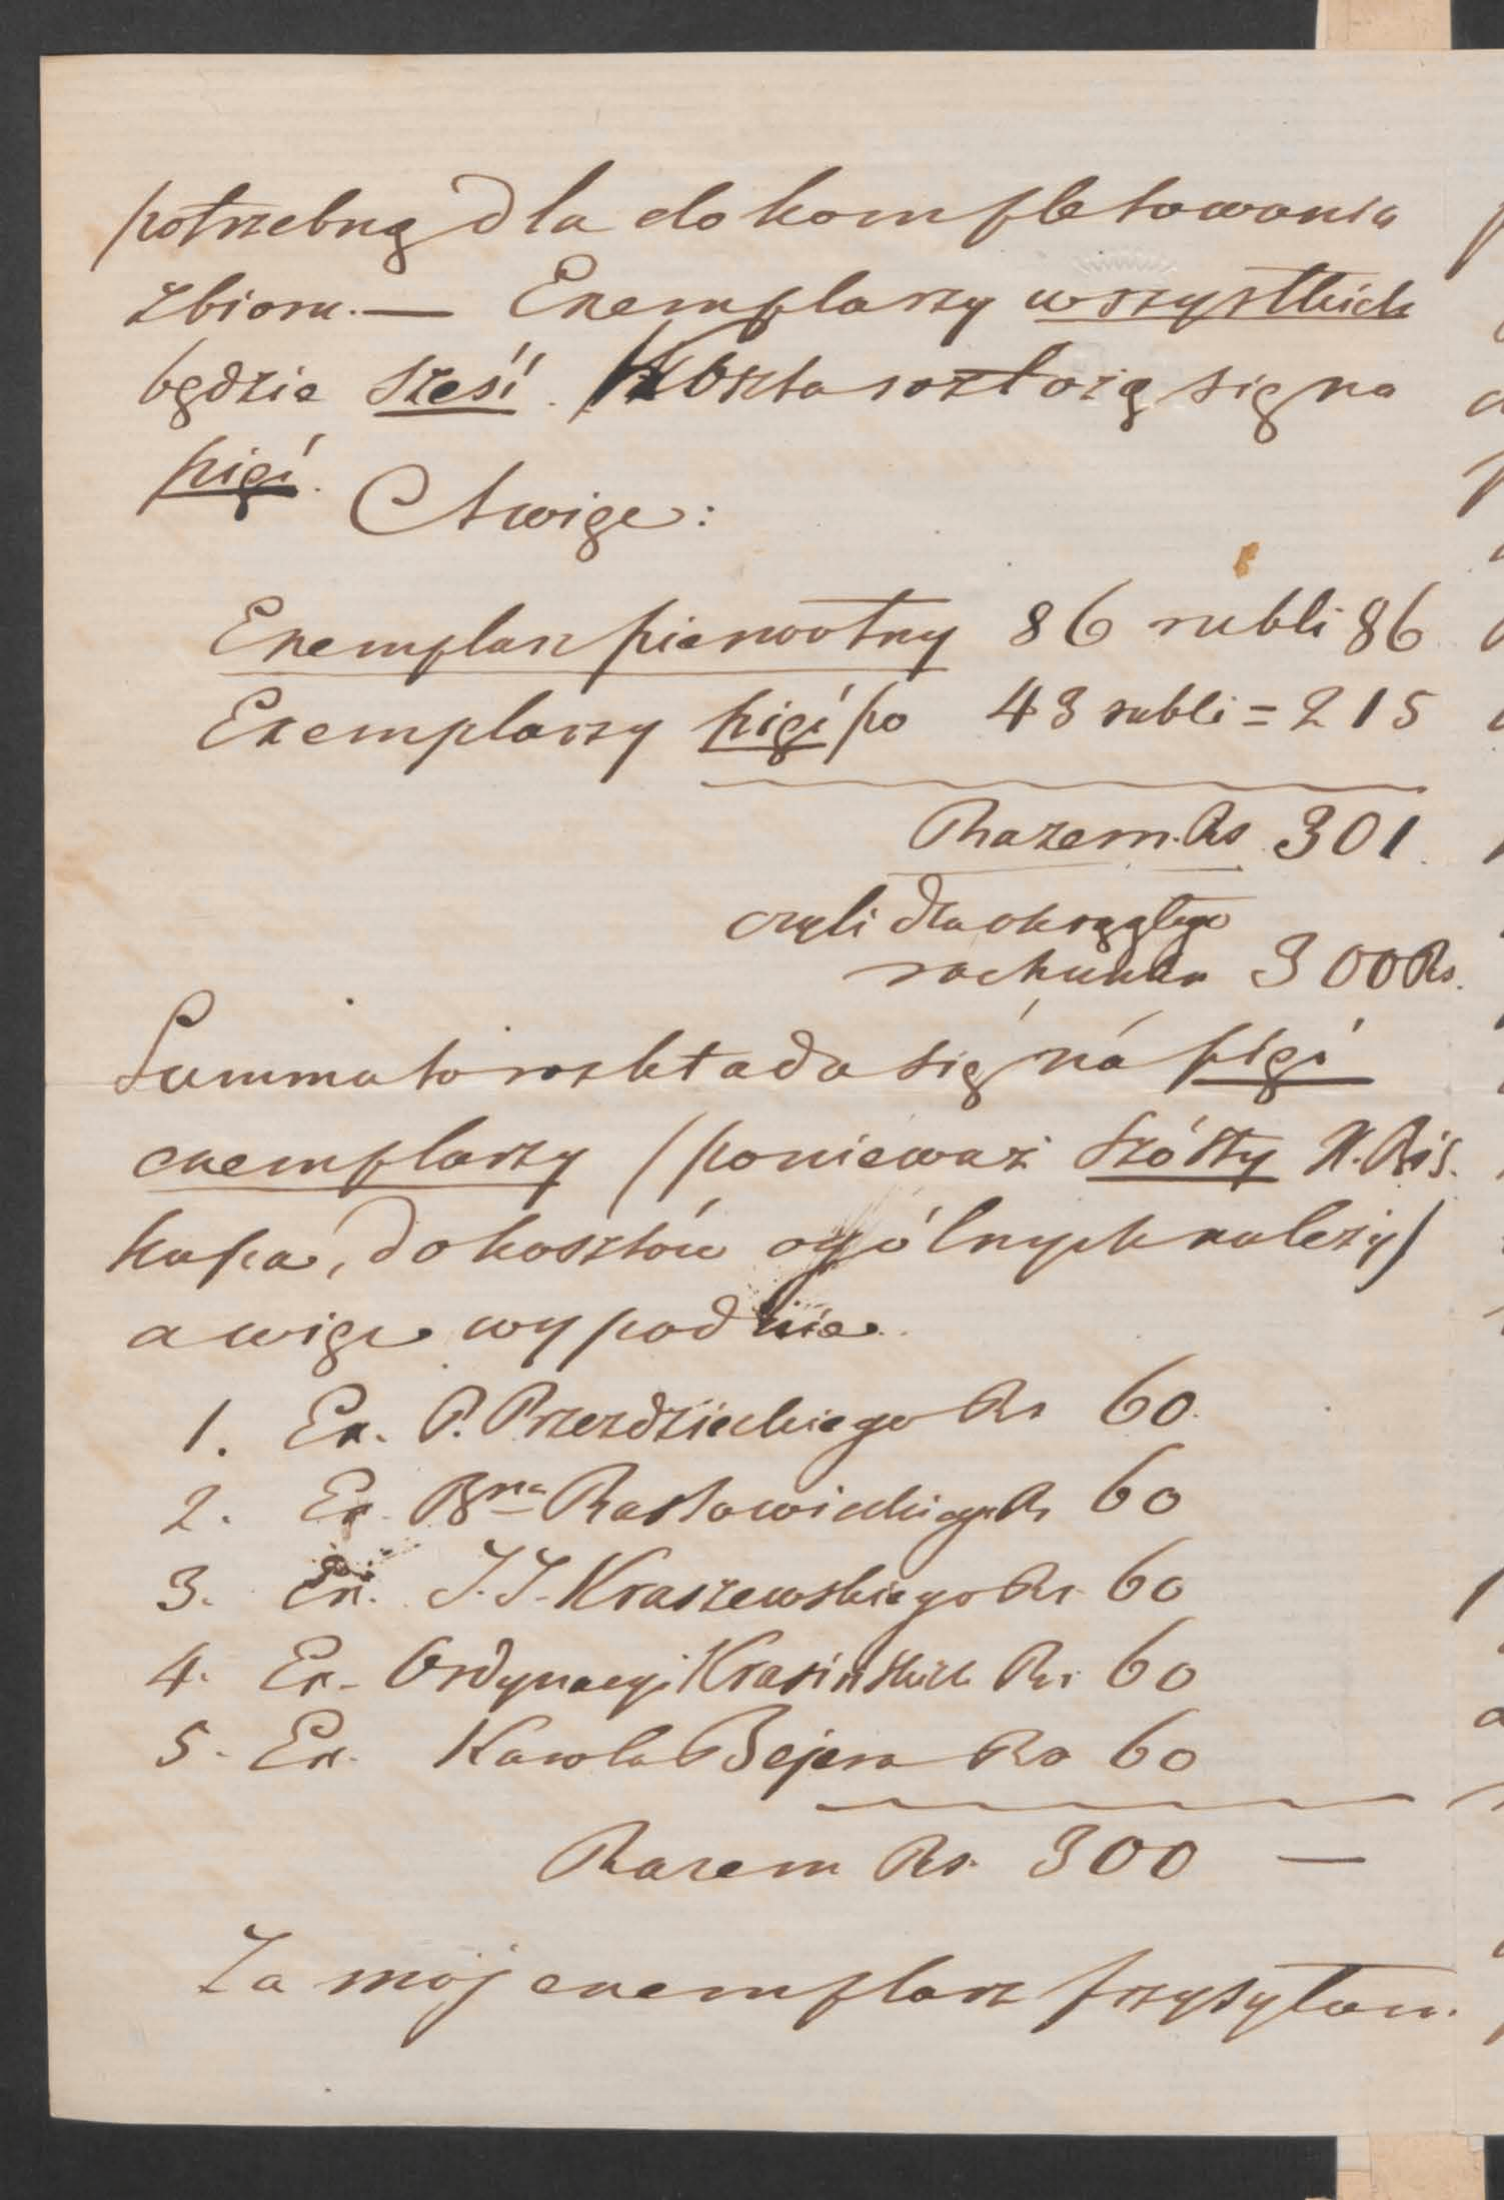 potrzebną dla dokompletowania
zbioru. — Exemplarzy wszystkich
będzie sześć. Koszta rozłożą się na
pięć. A więc:
Exemplarz pierwotny 86 rubli 86
Exemplarzy pięć po 43 rubli = 215
Razem. Rs 301.
czyli dla okrągłego
rachunku 300 Rs.
Summa ta rozkłada się na pięć
exemplarzy (ponieważ szósty X. Bis-
kupa, do kosztów ogólnych należy)
a więc wypadnie.
1. Ex. P. Przezdzieckiego Rs 60.
2. Ex. Bna Rastawieckiego Rs 60
3. Ex. J. I. Kraszewskiego Rs 60
4. Ex. Ordynacyi Krasińskich Rs. 60
5. Ex. Karola Bejera Rs 60
Razem Rs. 300 —
Za mój exemplarz przysyłam